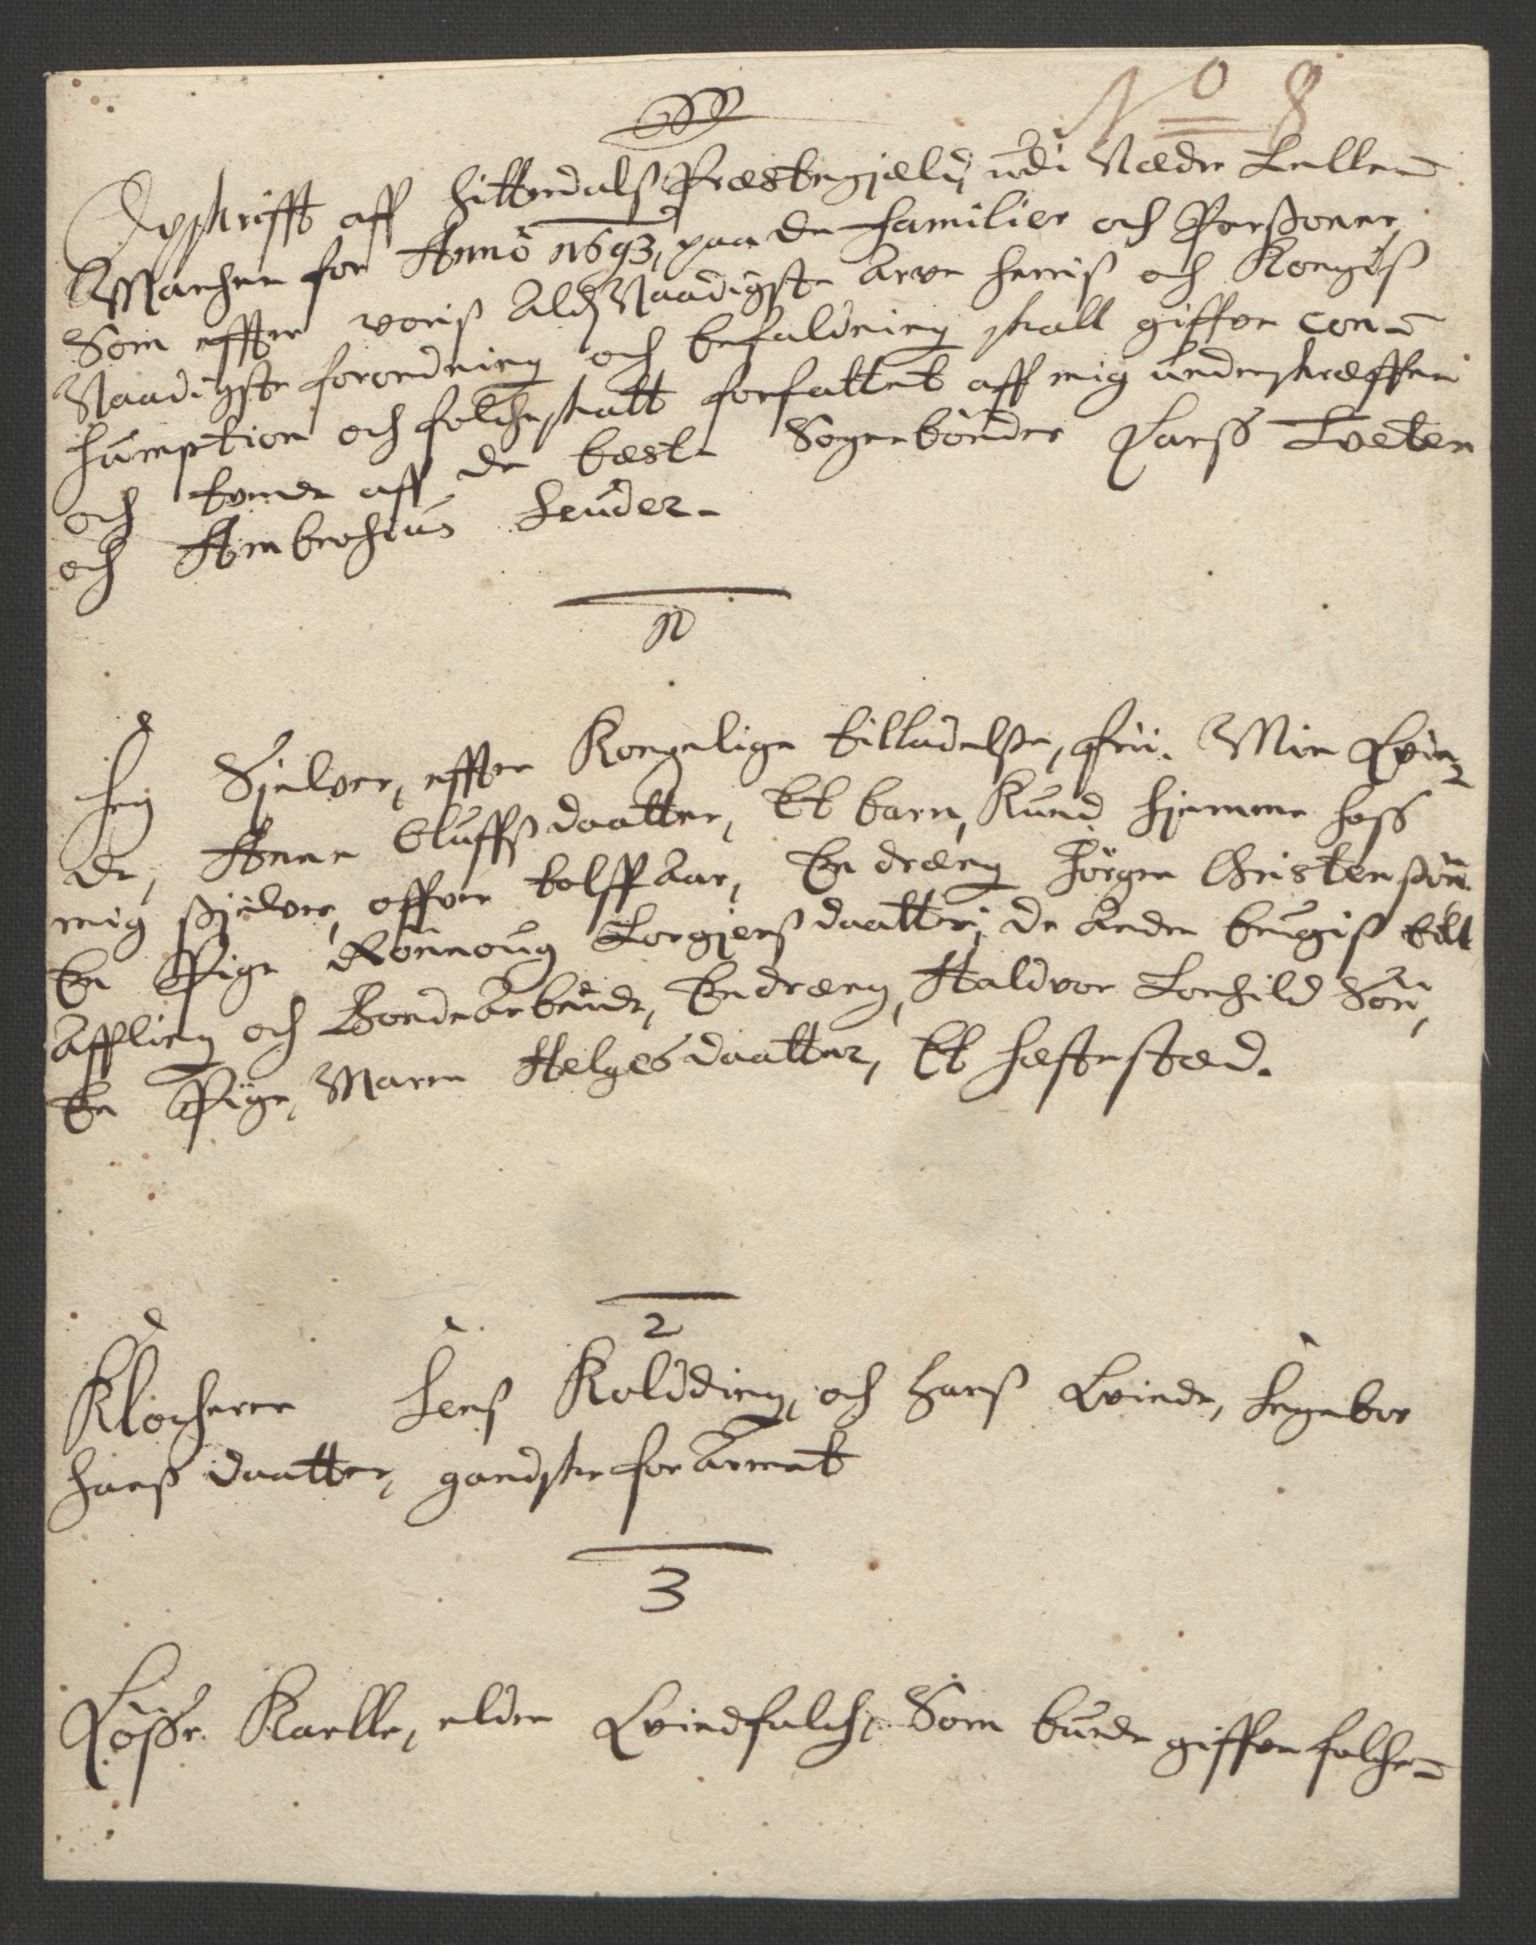 No 8
Opskrifft aff Hitterdals Præstegjæld, udi Nædre Telle-
Marchen for Anno 1693, paa de Familier och Persohner
Som effter voris Ald Naadigste Arve Herris och Kongis
Naadigste forordning och befaldning skall giffve Con-
sumption och folcheskatt forfattet aff mig underskreffven
och tvende aff de beste Sognebønder Larss Tveten
och Ambrosius Seuder.
1
Jeg Sjelver, effter Kongelige tilladelse, frii. Min Qvin-
de, Anne Oluffsdaatter, Et barn, Kund hjemme hoss
mig sjelver, offver tolff Aar, En dræng Jørgen Christensøn
En Pige Rønnoug Torgjersdaatter; de Andre brugis till
Affling och Bonde Arbeide, En dræng, Haldvor Torchild Søn,
En Pige, Maren Helgesdaatter, Et hæstestæd.
2
Klocheren Jens Koldding, och hans Qvinde, Ingebor
Hansdaatter, gandske for Armet
3
Løsse Karlle, eller Qvindfolch, Som burde giffve folche-